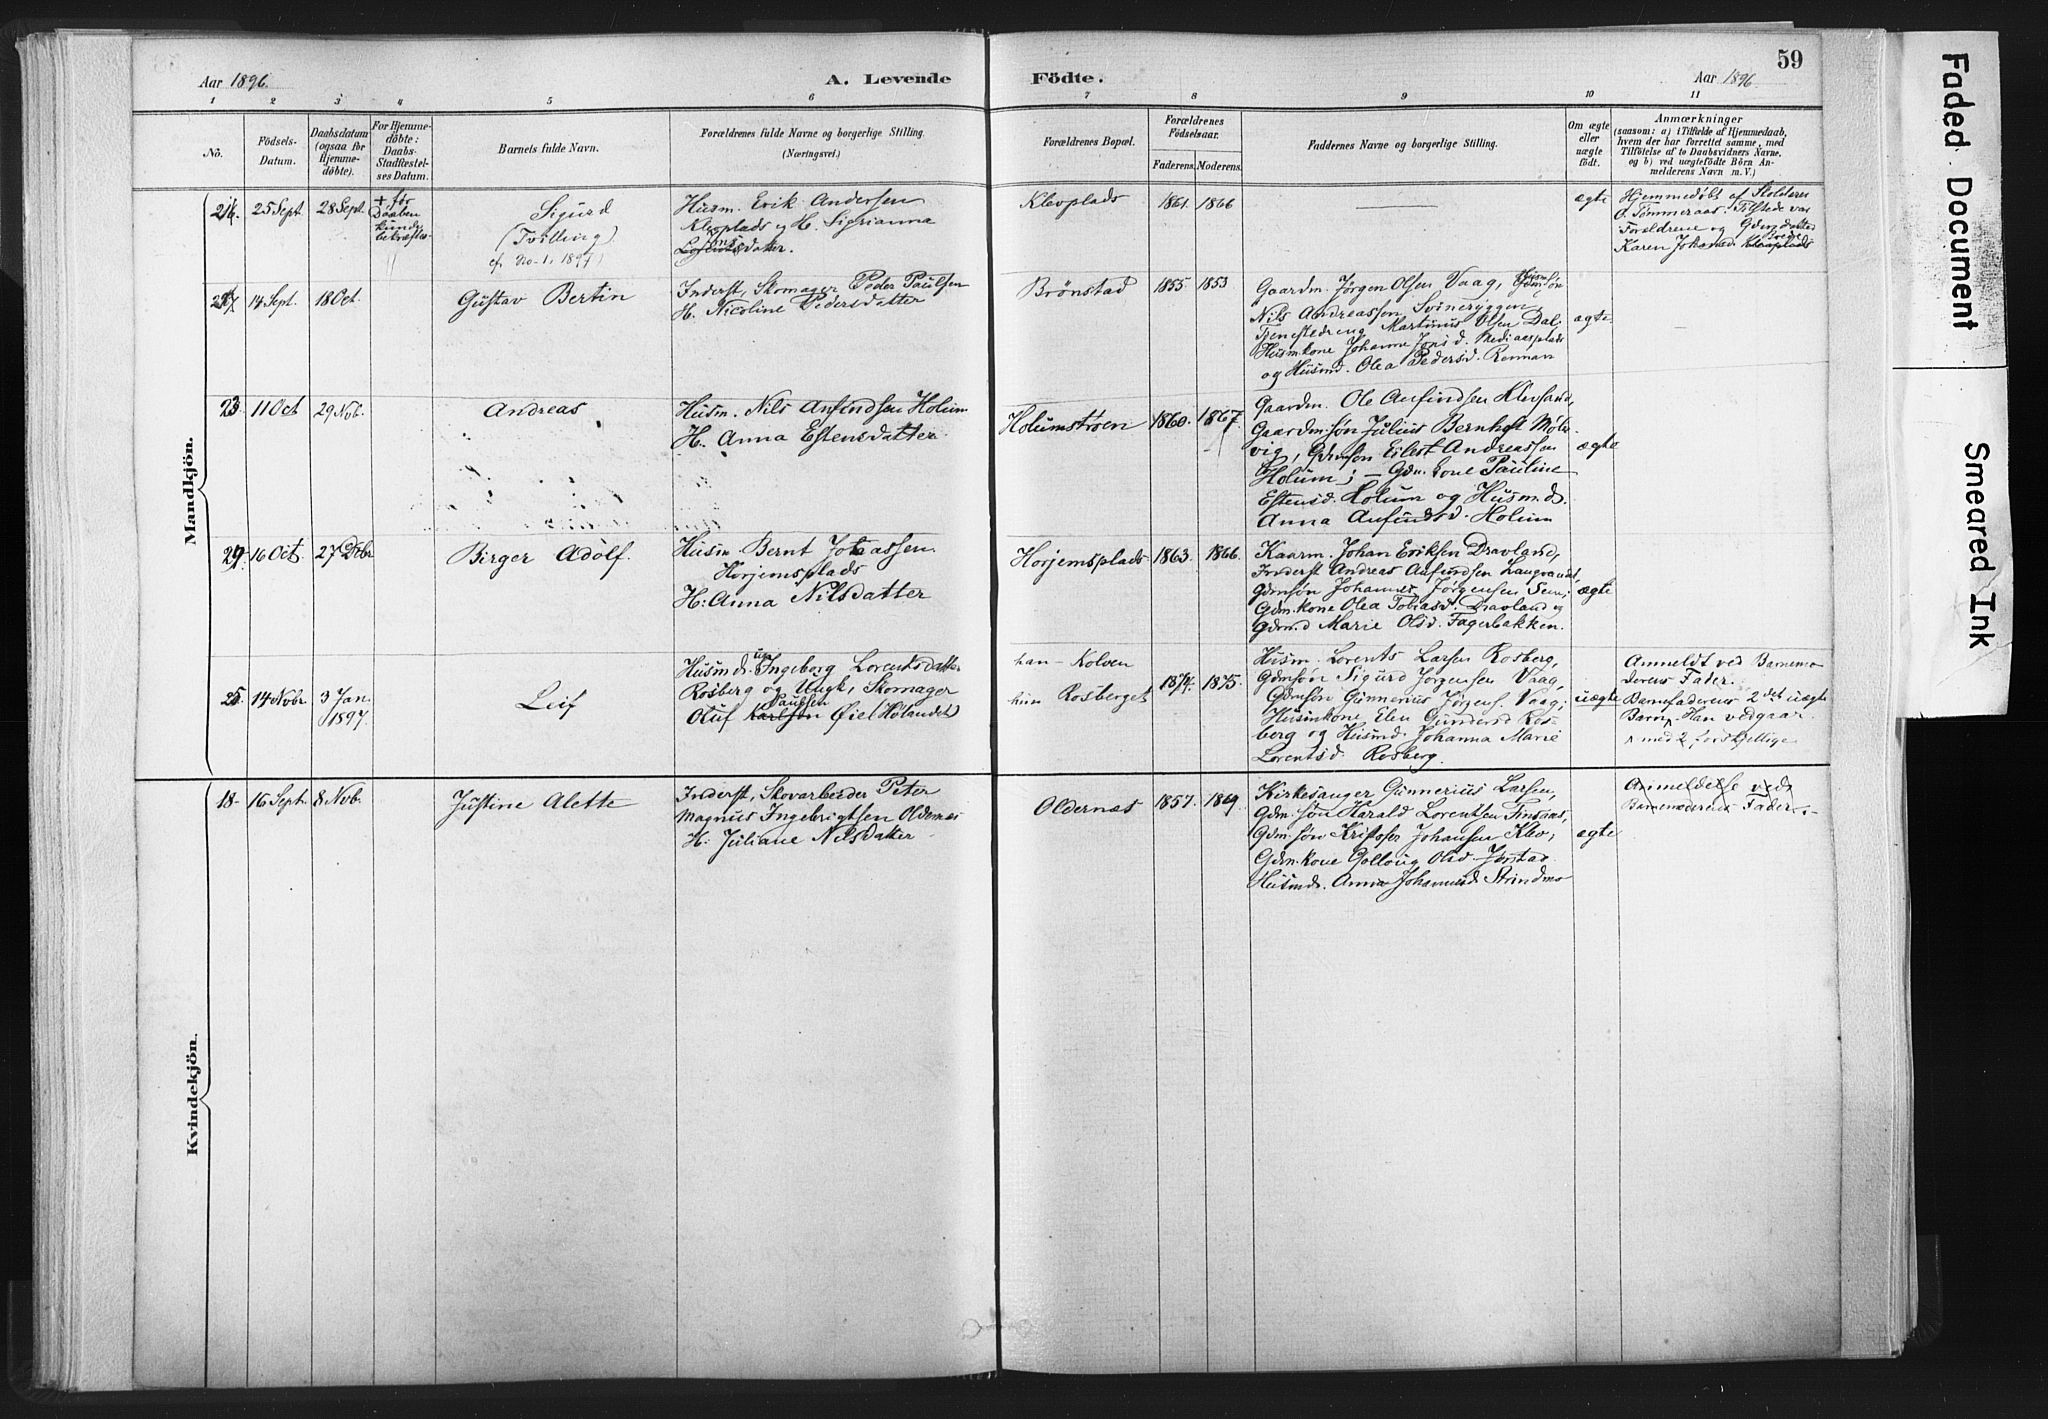 59
Aar 1896.
A. Levende
Födte.
Aar 1896.
1
2
3
4
5
6
7
8
9
10
11
No.
Födsels-
Datum.
Daabsdatum
(ogsaa for
Hjemme-
döbte).
For Hjemme-
döbte:
Daabs-
Stadfæstel-
ses Datum.
Barnets fulde Navn.
Forældrenes fulde Navne og borgerlige Stilling.
(Næringsvei.)
Forældrenes Bopæl.
Forældrenes
Födselsaar.
Faderens.
Moderens.
Faddernes Navne og borgerlige Stilling.
Om ægte
eller
uægte
födt.
Anmærkninger
(saasom: a) i Tilfælde af Hjemmedaab,
hvem der har forrettet samme, med
Tilföielse af to Daabsvidners Navne,
og b) ved uægtefödte Börn An-
melderens Navn m. V.)
Mandkjön.
21.
25 Sept.
28 Sept.
+ før
Daaben
kunde
bekræftes
Sigurd
(Tvilling)
cf. No. 1, 1897)
Husm. Erik Andersen
Klevplads og H. Sigrianna
datter.
Klevplads
1861.
1866
ægte
Hjemmedøbt af Skolelærer
O. Tømmeraas. Tilstede var
Foreldrene og Gdm. datter
Karen Johansd.
14 Sept.
18 Oct.
Gustav Bertin
Inderst, Skomager Peder Paulsen
H. Nicoline Pedersdatter
Brønstad
1855
1853
Gaardm. Jørgen Olsen Vaag,
Nils Andreassen Svineryggen
Tjenestedreng Martinus Olsen Dal
Husmkone Johanna Jonsd. Mediaasplads
og Husmd. Olea Pedersd. Rennan
ægte
—
23
11 Oct
29 Nvb.
Andreas
Husm. Nils Anfindsen Holum
H. Anna Estensdatter.
Holumstrøen
1860.
1867.
Gaardm. Ole Anfindsen Klevsand,
Gaardm.søn Julius Bernhoft Møls-
vig, Gdmsøn Eilert Andreassen
Holum; — Gdm. kone Pauline
Estensd. Holum og Husm.d.
Anna Anfindsd. Holum
ægte
24
16 Oct.
27 Dcbr
Birger Adolf.
Husm. Bernt Johassen
Horjemsplads
H: Anna Nilsdatter
Horjemsplads
1863.
1866.
Kaarm. Johan Eriksen Dravland,
Inderst Andreas Anfindsen Langvandet,
Gdmsøn Johannes Jørgensen Sem;
Gdm.kone Olea Tobiasd. Dravland og
Gdm.d Marie Olsd. Fagerbakken.
ægte
25.
14 Nvbr
3 Jan.
1897.
Leif
Husmdr. Ingeborg Lorentsdatter
Rosberg og Ungk, Skomager
Paulsen
Oluf Karlsen Øiel (Hølandet)
han - Kolven
hun Rosberget
1874.
1875.
Husm. Lorents Larsen Rosberg,
Gdmsøn Sigurd Jørgensen Vaag,
Gdmsøn Ginnerius Jørgens. Vaag;
Husmkone Elen Gundersd Ros-
berg og Husmd. Johanna Marie
Lorentsd. Rosberg.
uægte
Anmeldt ved Barnemo
derens Fader.
Barnefaderens 2det uægte
Barn. Han vedgaar.
^ med 2 forskjellige
Kvindekjön.
18.
16 Sept.
8 Nvb.
Justine Alette
Inderst, Skovarbeider Peter
Magnus Ingebrigtsen Oldernæs
H. Juliane Nilsdatter
Oldernæs
1857.
1869.
Kirkesanger Ginnerius Larsen,
Gdm.søn Harald Lorentsen Finsaas,
Gdm.søn Kristofer Johansen Klev;
Gdm.kone Gollaug Olsd. Jørstad.
Husmdr. Anna Johannesd. Strindmo
ægte
Anmeldelse ved
Barnemoderens Fader.
Faded Document
Smeared Ink